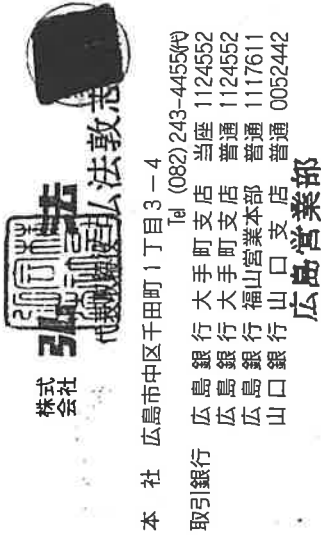 株式
会社 弘法
代表取締役 弘法敦志
本社 広島市中区千田町1丁目3-4
Tel (082)243-4455(代)
取引銀行 広島銀行大手町支店 当座 1124552
広島銀行大手町支店 普通 1124552
広島銀行福山営業本部 普通 1117611
山口銀行山口支店 普通 0052442
広島営業部